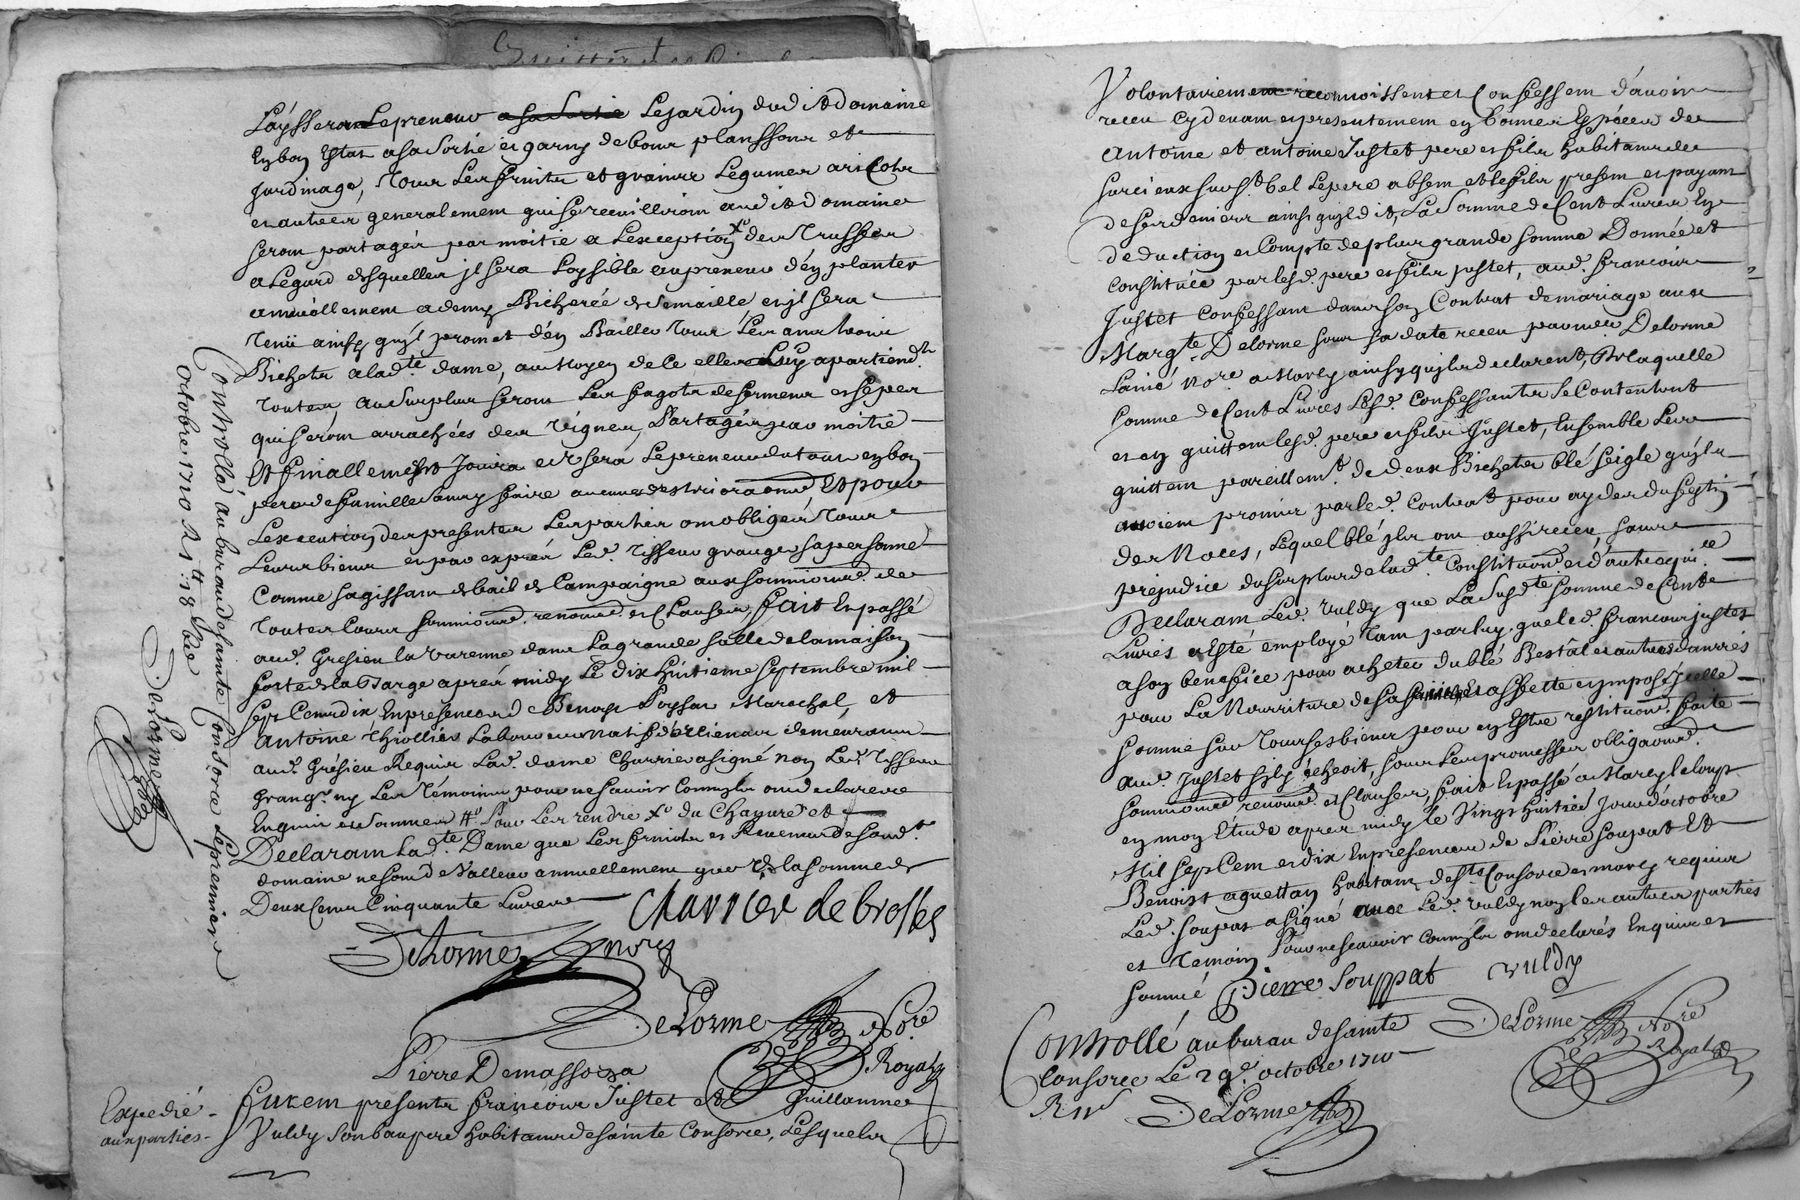 Laysser Lepreneur a sa Sortie Lejardin dudit domaine
En bon Estat a sa Sortie et garny de bons planssons et
Jardinage, Tous Les fruits et graines Legumes aricots
et autres generalement qui se recuilliront audit Domaine
seront partagés par moitié a Lexception des Truffes
a Legard desquelles jl sera Loysible au preneur d'en planter
annuellement a demy Bicherée de semaille et jl sera
Tenu ainsy qu'jl promet d'en Bailler Tous Les ans trois
Bichets a lad.te dame, au Moyen de Ce elles Luy apartiendr.t
Toutes, au Surplus seront Les fagots de serment et seps
qui seront arrachées des Vignes, Partagés par moitié
Et finallement Jouira et Vsera Lepreneur du tout en bon
pere de famille sans y faire aucunes destriora.ons Et pour
Lexecution des presentes Les parties ont obligés Tous
Leurs biens et par exprés Led. Tisseur granger sa personne
Comme sagissant de bail de Campaigne aux soumissions de
Toutes Cours soumissions renon.ons et Clauses, fait Et passé
aud. Gresieu la Varenne dans La grande salle de la maison
forte de la Barge aprés midy Le dix huitieme septembre mil
sept Cens dix En presence de Benoist Poyssat Marechal, et
Antoine Thiollier Laboureur natif d'Yzieron demeurants
aud. Gresieu Requis Lad. dame Charrier a signé non Led. Tisseur
grang.r ny Les Témoins pour ne scavoir Comme jls ont declarés
Enquis et sommés # Pour Les rendre x.e du Chanvre et
Declarant Lad.te Dame que Les fruits et Revenus desd.t
domaine ne sont de Valleur annuellement que de la somme de
Deux Cens Cinquante Livres
Charrier de brosses
DeLorme
DeLorme No.re Royal
Pierre Demassoza
Controllé au bureau de sainte Consorce Le premier
octobre 1710 2 1tt: 18
DeLorme
Expedié
aux parties
Furent presents francois Justet et Guillaume
Vuldy son beaupere habitants de sainte Consorce, Lesquels
Volontairement reconnoissent et Confessent d'avoir
receu Cydevant et presentement en bonnes Especes de
Antoine et antoine Justet pere et fils habitants de
Le pere absent et le fils present et payant
de ses deniers ainsi qu'jl dit, La Somme de Cent Livres En
deduction et Compte de plus grande somme Donnée et
Constituée par lesd. pere et fils Justet, aud. francois
Justet Confessant dans son Contrat de mariage avec
Marg.te Delorme sous sa date receu par moy Delorme
Lainé No.re a Marcy ainsy qu'jls declarent, De laquelle
somme de Cent Livres Lesd. Confessants se Contentent
et en quittent lesd. pere et fils Justet, Ensemble Les
quittent pareillem.t de deux Bichets blé seigle qu'jls
avoient promis par led. Contrat pour ayder du festin
des Noces, Lequel blé jls ont aussi receu, sans
prejudice du surplus de lad.te Constitution et d'autre quit.ce
Declarant Led. Vuldy que La susd.te somme de Cent
Livres a Esté employé Tant par luy que led. francois justet
a son benefice pour acheter du blé Bestal et autres danrés
pour La Nourriture de sa famille Et assette et jmposé jcelle
somme sur Tous ses biens pour en Estre restitution faite
aud. Justet s'jl y echeoit, sous Les promesses obliga.ons
soumissions renon.ons et Clauses, fait Et passé a Marcy le loup
en mon Etude apres midy le Vingt huitie. Jour d'octobre
Mil sept Cent et dix En presence de Pierre Soupat Et
Benoist aguettan habitants de S.te Consorce et marcy requis
Led. soupat a signé avec Led. Vuldy non les autres parties
et Temoin Pour ne scavoir Comme jls ont declarés Enquis et
sommé Pierre Souppat Vuldy
DeLorme No.re Royal
Controllé au bureau de sainte
Consorce Le 29e. octobre 1710
DeLorme